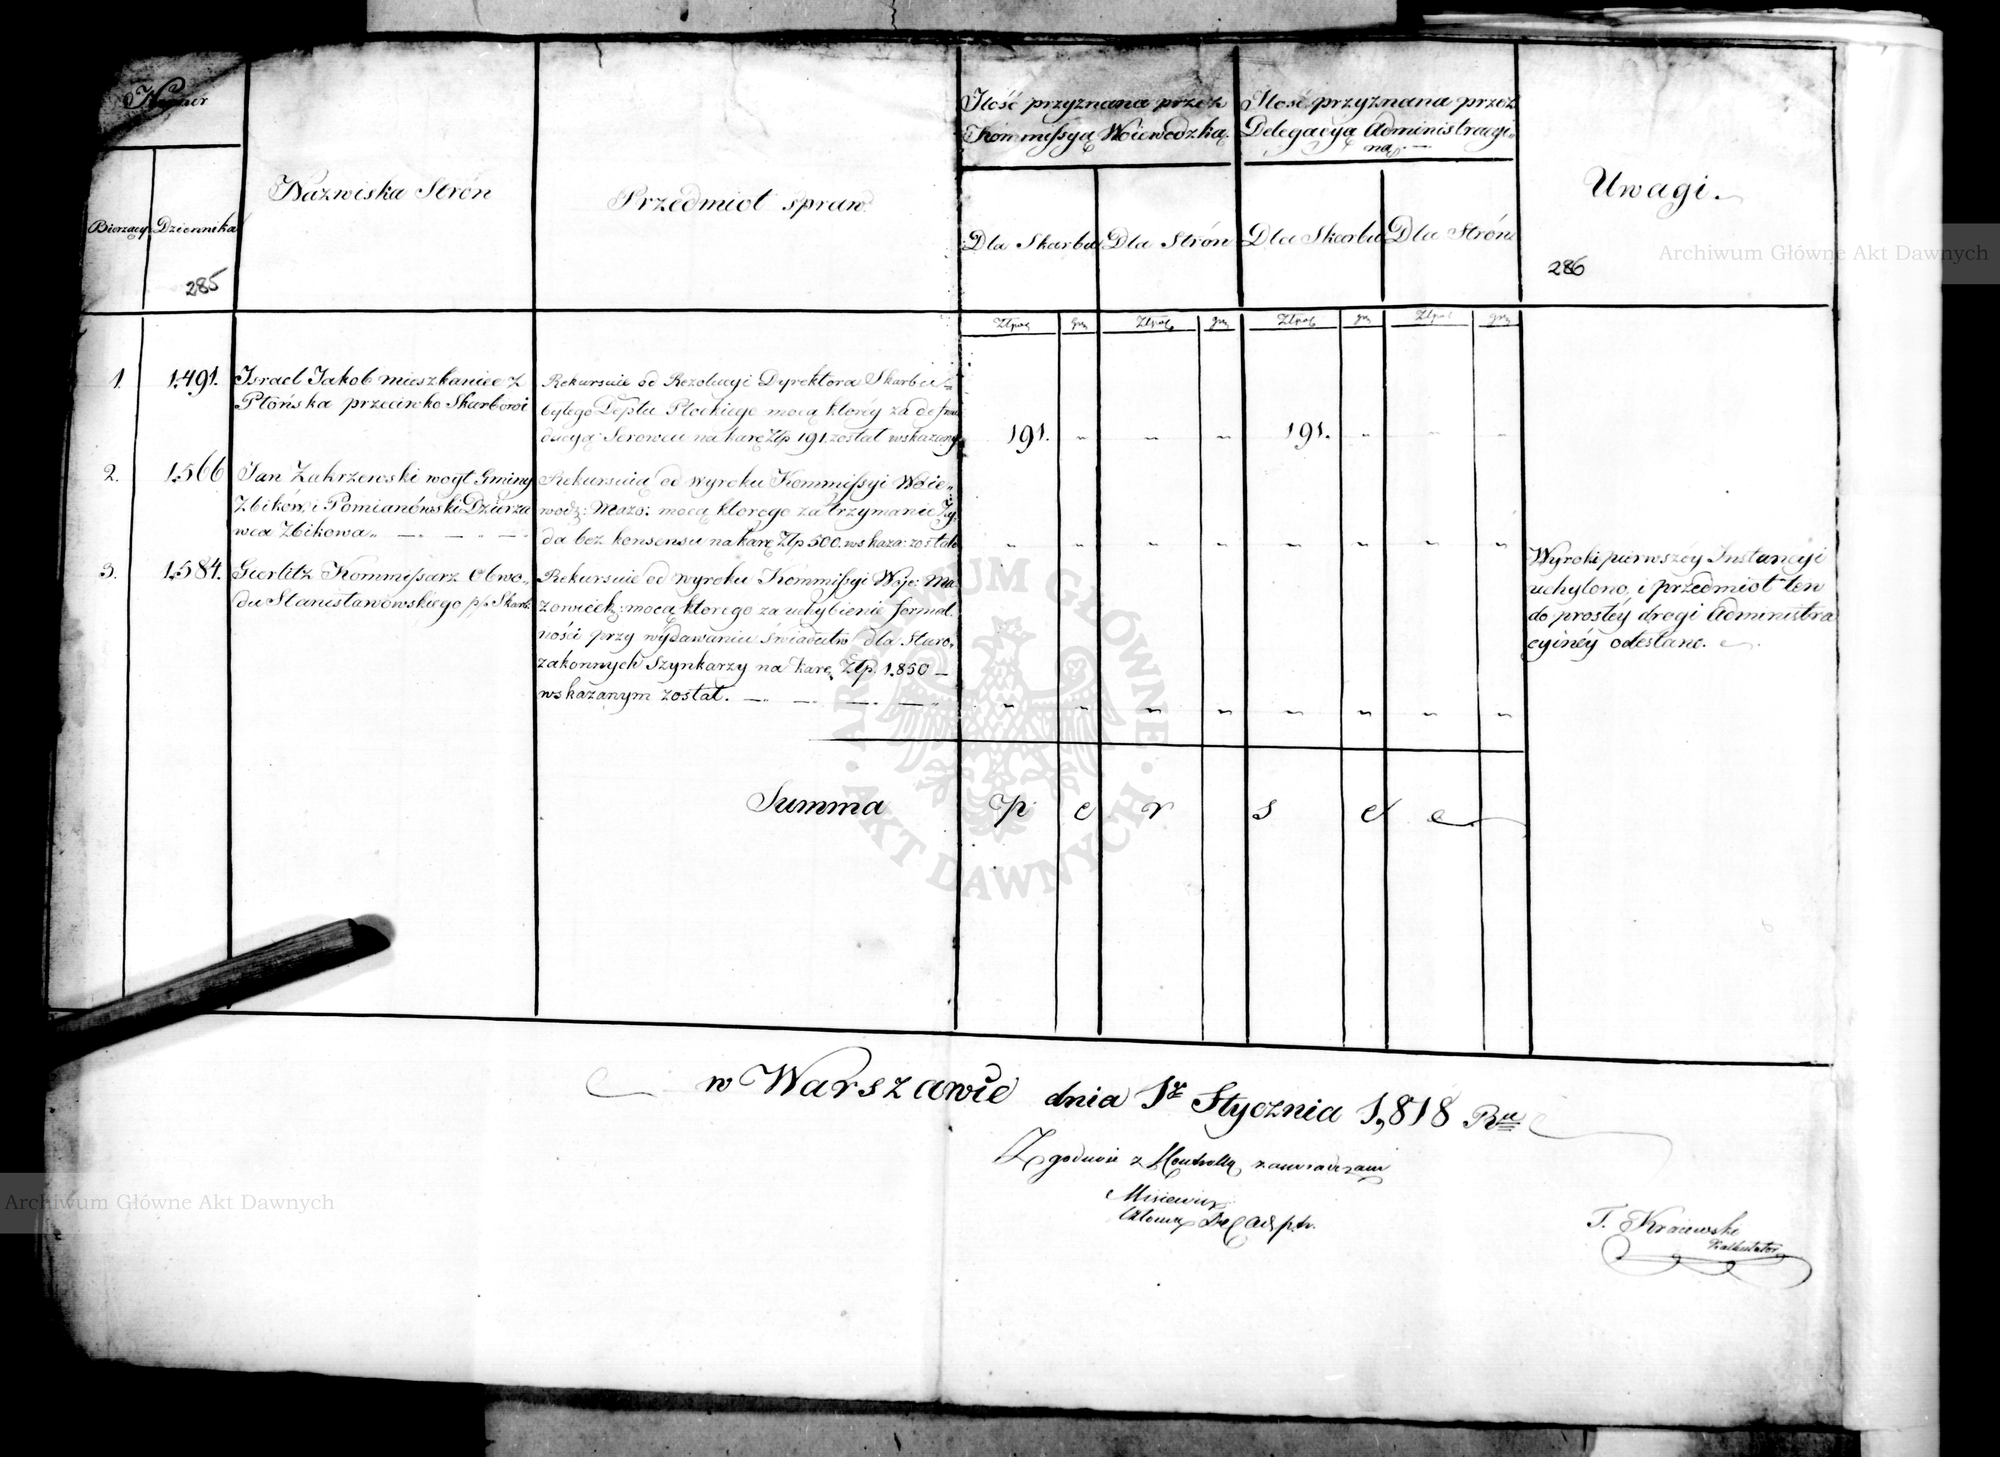 Numer
Bierzący
Dziennika
285
Nazwiska Strón
Przedmiot spraw.
Ilość przyznana przez
Kommissyą Woiewodzką.
Ilość przyznana przez
Delegacyą Administracyi„
ną. —
Dla Skarbu
Dla Strón
Dla Skarbu
Dla Strón
Uwagi.
286
Złpol gr Złpol gr Złpol gr Złpol gr
1. 1.491. Israel Jakob mieszkaniec z
Płońska przeciwko Skarbowi
Rekursuie od Rezolucyi Dyrektora Skarbu
byłego Deptu Płockiego mocą któréy za defrau
dacyą Serowcu na karę Złp 191 został wskazany
191. „ „ „ 191. „ „ „
2. 1.566 Jan Zakrzewski woyt Gminy
Zbików, i Pomianówski Dzierza
wca Zbikowa„ — . — . —
Rekursuią od wyroku Kommissyi Woie„
wodz: Mazo: mocą ktorego za trzymanie Ży„
da bez konsensu na karę Złp 500. wskaza: zostali
„ „ „ „ „ „ „ „
3. 1.584. Gierlitz Kommissarz Obwo„
du Stanisławowskiego p/o Skarb:
Rekursuie od wyroku Kommissyi Woje: Ma„
zowieck: mocą ktorego za uchybienie formal„
ności przy wydawaniu świadectw dla Staro„
zakonnych Szynkarzy na karę Złp. 1.850 —
wskazanym został. — . — . — . — .
„ „ „ „ „ „ „ „
Wyrok pierwszéy Instancyi
uchylono, i przedmiot ten
do prostéy drogi Administra
cyinéy odesłano.
Summa p e r s e
w Warszawie dnia 1go Stycznia 1,818 Ru
Zgodnie z Kontrollą zaswiadczam
Misiewicz
Członek Del Ad
T. Kraiewski
Kalkulator
Archiwum Główne Akt Dawnych
Archiwum Główne Akt Dawnych
ARCHIWUM GŁÓWNE · AKT DAWNYCH ·